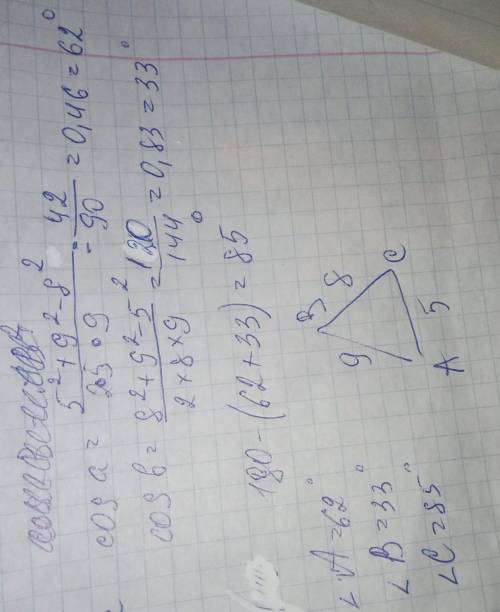 cos a = 5² + 9² - 8² / 2·5·9 = 42 / 90 = 0,46 = 62°
cos b = 8² + 9² - 5² / 2 × 8 × 9 = 120 / 144 = 0,83 = 33°
180 - (62 + 33) = 85°
∠ A = 62°
∠ B = 33°
∠ C = 85°
B
9
8
A
5
C